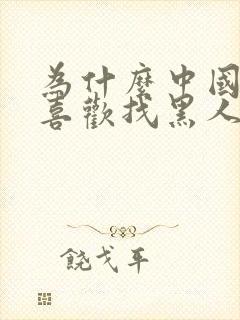 為什麼中國
喜歡找黑人
饒戈平